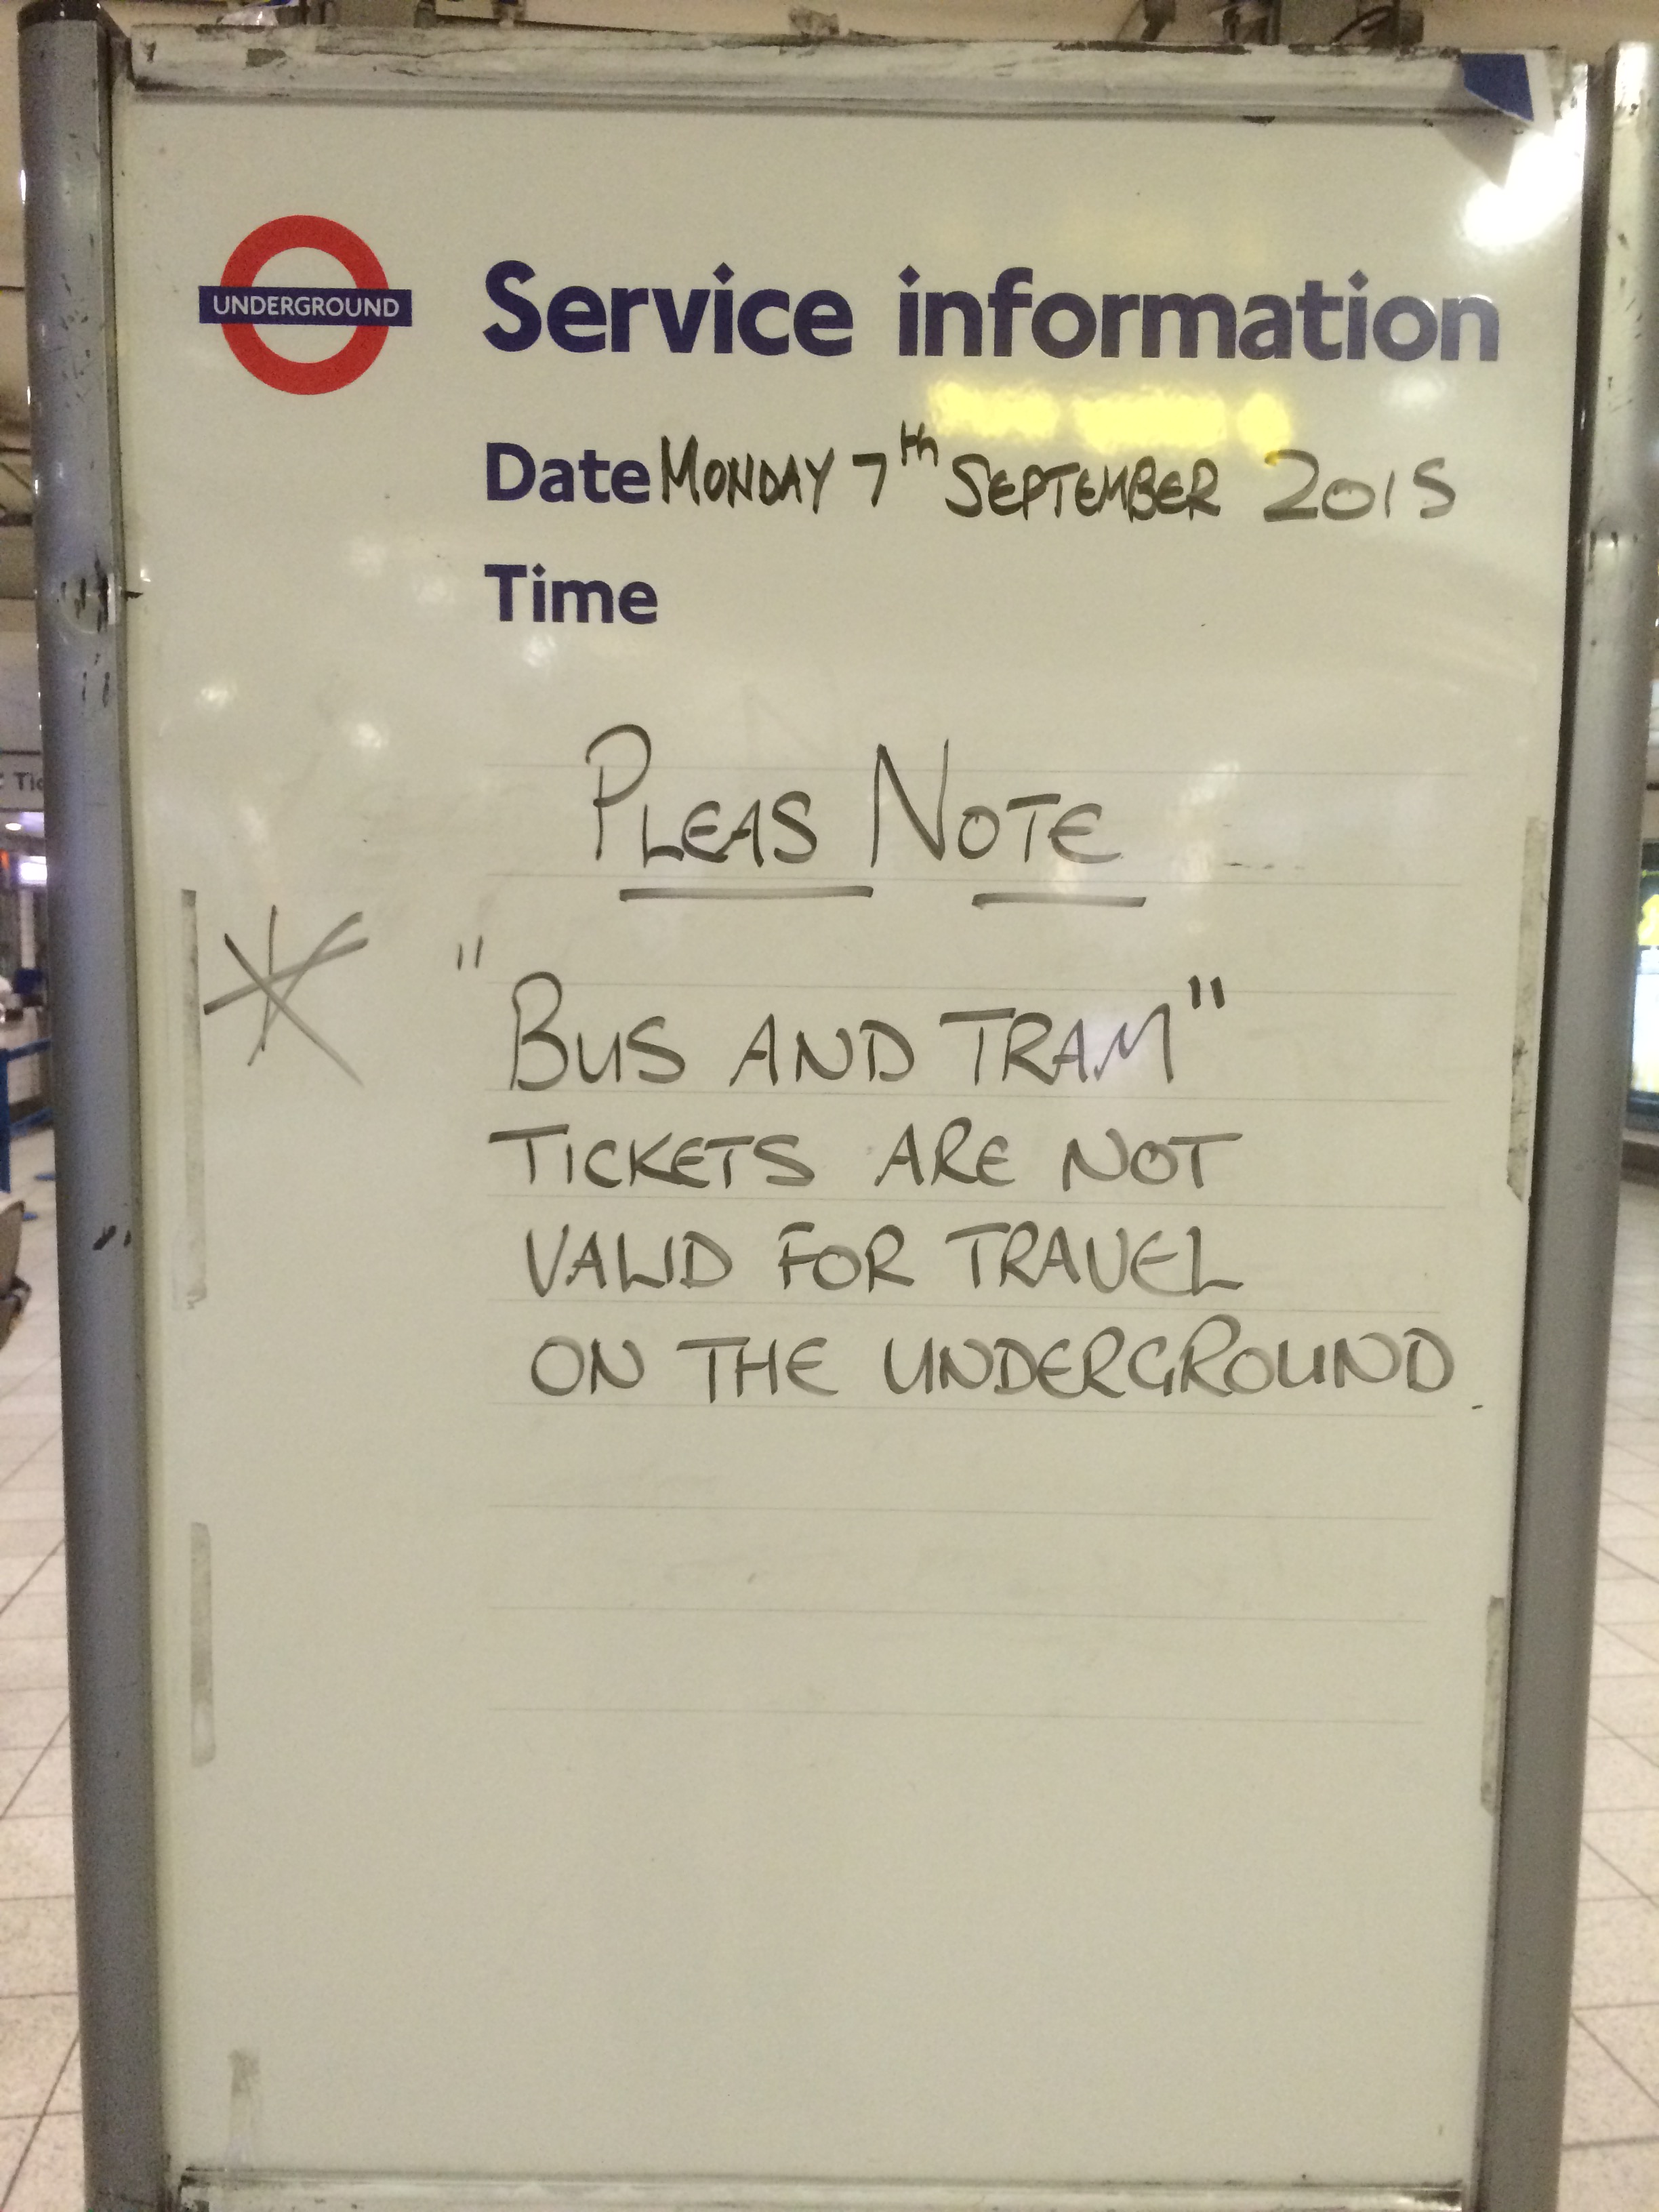 UNDERGROUND
Service information
Date MONDAY 7th SEPTEMBER 2015
Time
PLEAS NOTE
"
BUS AND TRAM"
TICKETS ARE NOT
VALID FOR TRAVEL
ON THE UNDERGROUND